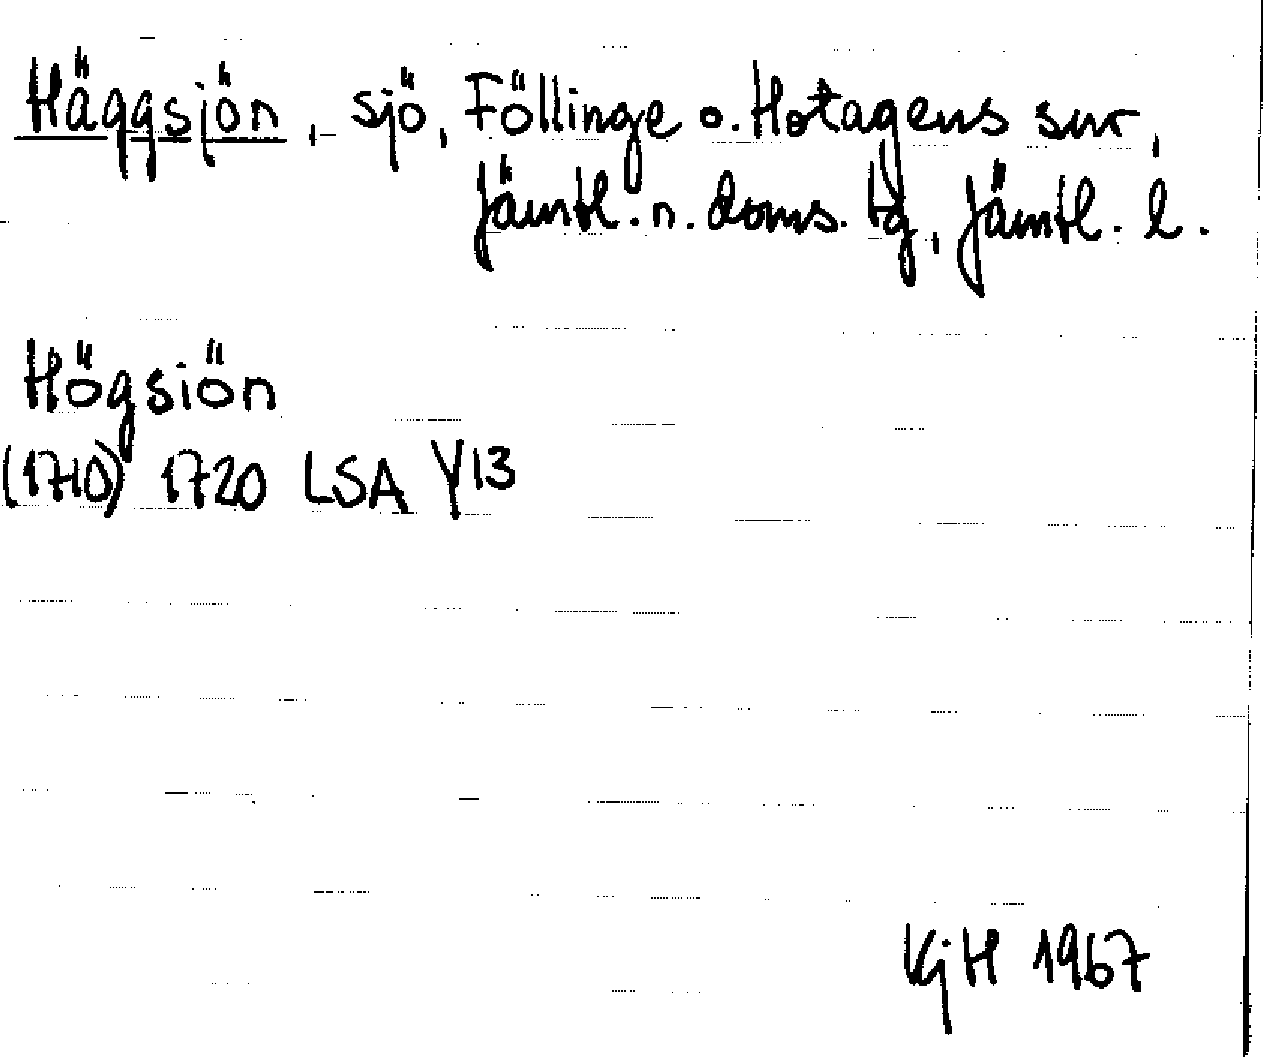 Häggsjön, sjö, Föllinge o. Hotagens snr,
Jämtl. n. doms. tg, Jämtl. l.
Högsiön
(1710) 1720 LSA Y13
KjH 1967